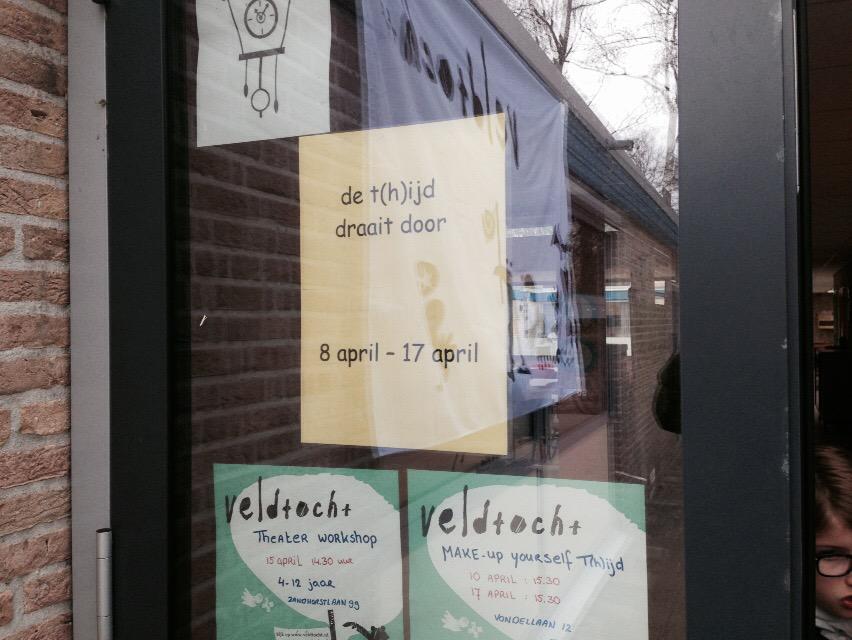 de t(h)ijd
draait door
8 april - 17 april
veldtocht
Theater workshop
15 april 14.30 uur
4-12 jaar
Zandhorstlaan 99
veldtocht
Make-up yourself T(h)ijd
10 april : 15.30
17 april : 15.30
Vondellaan 12